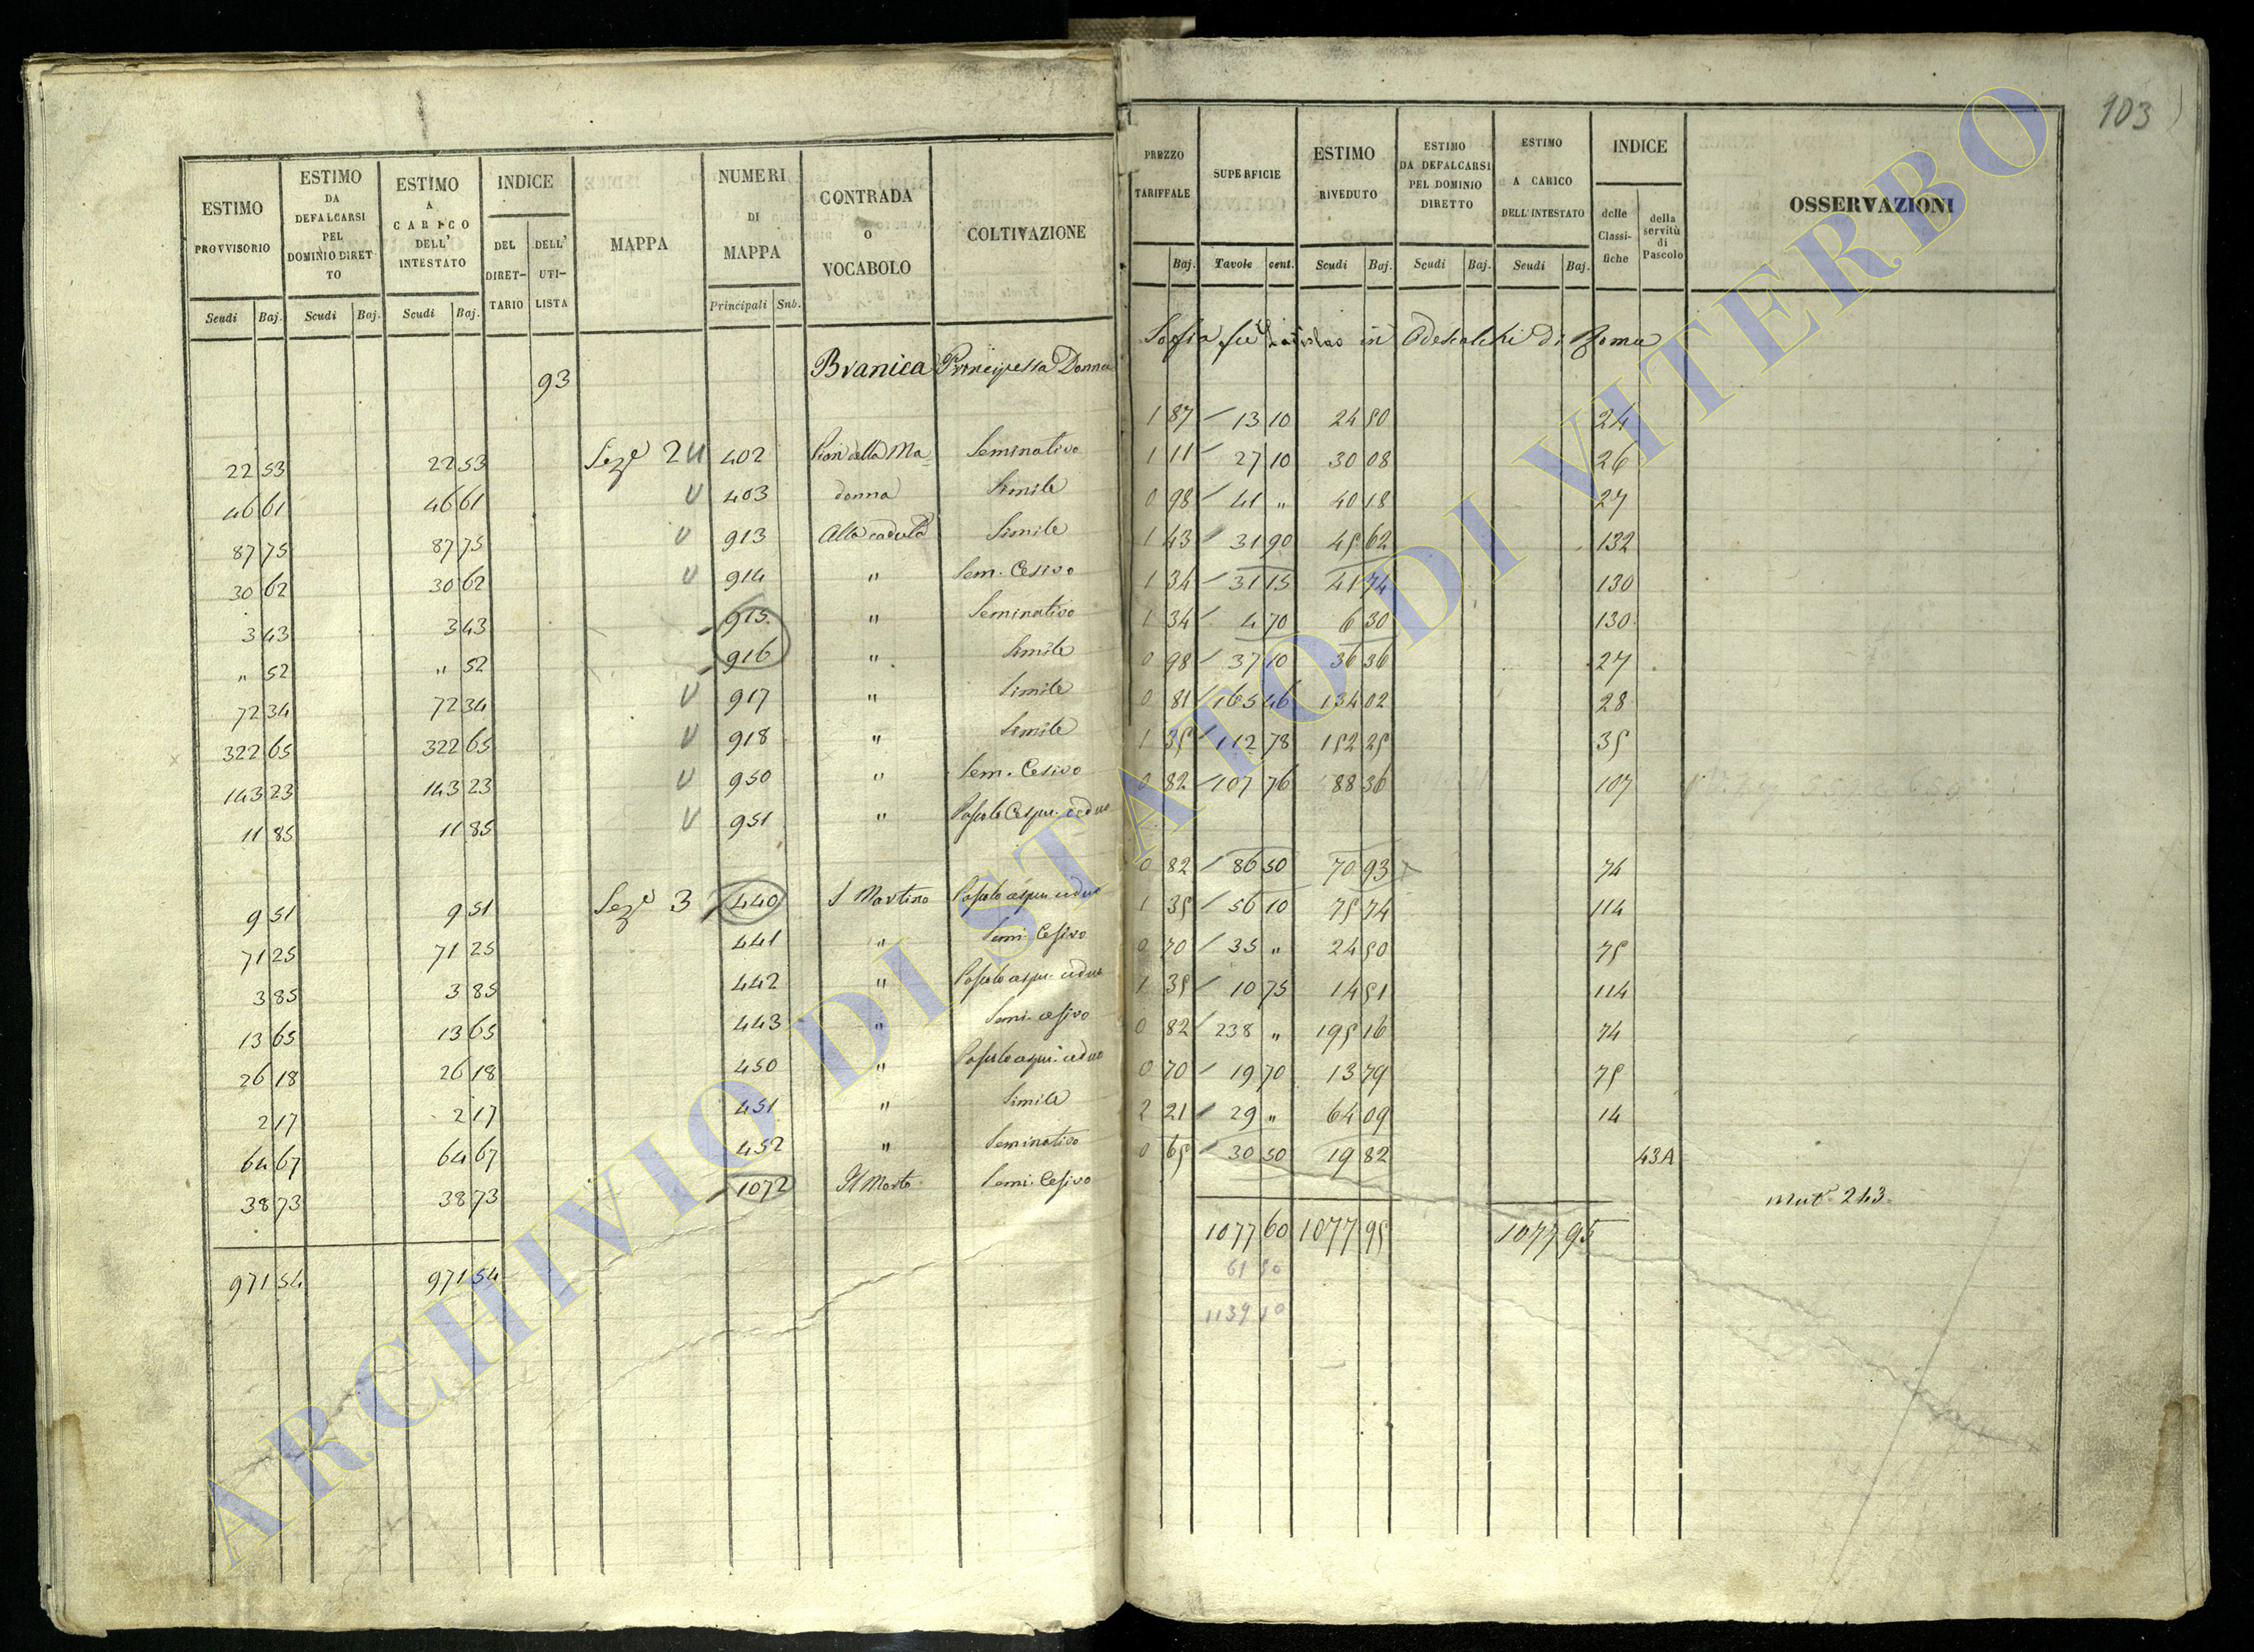 103
ESTIMO PROVVISORIO Scudi Baj.
ESTIMO DA DEFALCARSI PEL DOMINIO DIRETTO Scudi Baj.
ESTIMO A CARICO DELL' INTESTATO Scudi Baj.
INDICE DEL DIRETTARIO DELL' UTILISTA
MAPPA
NUMERI DI MAPPA Principali Sub.
CONTRADA O VOCABOLO
COLTIVAZIONE
PREZZO TARIFFALE Baj.
SUPERFICIE Tavole cent.
ESTIMO RIVEDUTO Scudi Baj.
ESTIMO DA DEFALCARSI PEL DOMINIO DIRETTO Scudi Baj.
ESTIMO A CARICO DELL'INTESTATO Scudi Baj.
INDICE delle Classifiche della servitù di Pascolo
OSSERVAZIONI
93 Branica Principessa Donna Sofia fu Ladislao in Odescalchi di Roma
22 53 22 53 Seze 2 402 Pian della Ma= Seminativo 1 87 13 10 24 50 24
46 61 46 61 403 donna Simile 1 11 27 10 30 08 26
87 75 87 75 913 Alla caduta Simile 0 98 41 " 40 18 27
30 62 30 62 914 " Sem. Cesivo 1 43 31 90 45 62 132
3 43 3 43 915 " Seminativo 1 34 31 15 41 74 130
" 52 " 52 916 " Simile 1 34 4 70 6 30 130
72 34 72 34 917 " Simile 0 98 37 10 36 36 27
322 65 322 65 918 " Simile 0 81 165 46 134 02 28
143 23 143 23 950 " Sem. Cesivo 1 35 112 78 152 25 35
11 85 11 85 951 " Pascolo Cespu. ceduo 0 82 107 76 88 36 107
9 51 9 51 Seze 3 440 S Martino Pascolo cespu ceduo 0 82 86 50 70 93 74
71 25 71 25 441 " Semi. Cesivo 1 35 56 10 75 74 114
3 85 3 85 442 " Pascolo cespu. ceduo 0 70 35 " 24 50 75
13 65 13 65 443 " Semi. cesivo 1 35 10 75 14 51 114
26 18 26 18 450 " Pascolo cespu. ceduo 0 82 238 " 195 16 74
2 17 2 17 451 " Simile 0 70 19 70 13 79 75
64 67 64 67 452 " Seminativo 2 21 29 " 64 09 14
38 73 38 73 1072 Semi. Cesivo 0 65 30 50 19 82 43A
mut. 243
971 54 971 54 1077 60 1077 95 1077 95
61 50
1139 10
ARCHIVIO DI STATO DI VITERBO